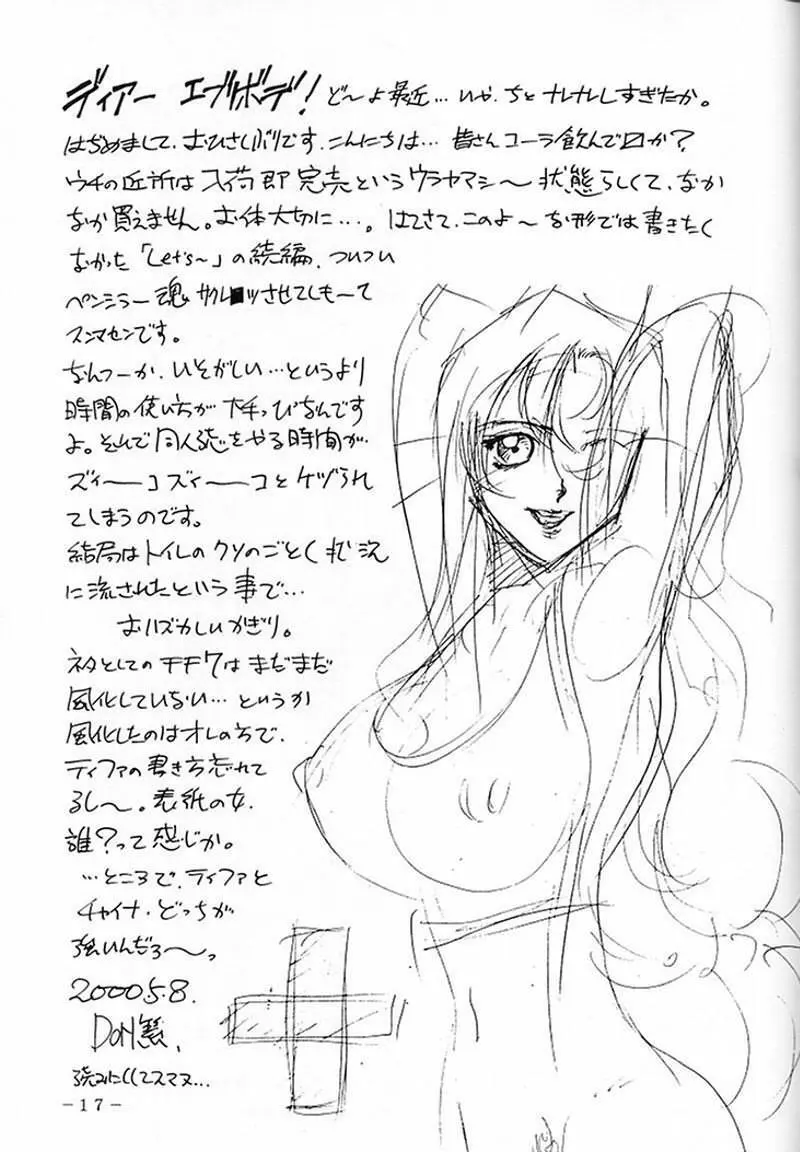 ディアー エブボデ! ど〜よ最近… いや、ちとナレナレしすぎたか。
はぢめまして、おひさしぶりです、こんにちは… 皆さんコーラ飲んで〼か?
ウチの近所は入荷即完売というウラヤマシ〜状態らしくて、なか
なか買えません。お体大切に…。はてさて、このよ〜な形では書きたく
なかった「Let's〜」の続編、ついつい
ペンシラー魂 サクレツさせてしもーて
スンマセンです。
なんつーか、いそがしい…というより
時間の使い方がヘタっぴなんです
よ。そんで同人誌をやる時間が
ズィーーコズィーーコとケヅられ
てしまうのです。
結局はトイレのクソのごとく状況
に流されたという事で…
おハズかしいかぎり。
ネタとしてのFF7はまだまだ
風化していない…というか
風化したのはオレのうちで、
ティファの書き方忘れて
るし〜。表紙の女、
誰?って感じか。
…ところで、ティファと
チャイナ、どっちが
強いんだろ〜っ
2000.5.8.
DON繁、
読みにくくてスマヌ…
-17-